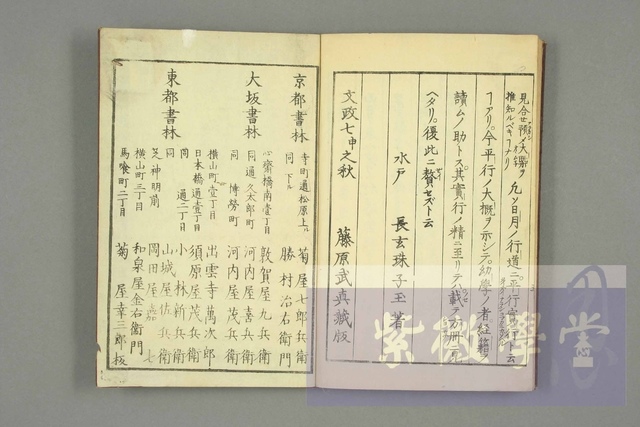 見合セ預メ大畧ヲ
推知ルベキナリ
凡ソ日月ノ行道ニ平行實行ト云
フアリ。今平行ノ大概ヲ示シテ幼學ノ者経籍ヲ
讀ムノ助トス。其實行ノ精ニ至リテハ載テ方冊ニ
ヘタリ。復此ニ贅セズト云
水戸 長玄珠子玉著
文政七申之秋 藤原武真藏版
京都書林
寺町通松原上ル 菊屋七郎兵衛
同 下ル 勝村治右衛門
大坂書林
心齋橋南壹丁目 敦賀屋九兵衛
同通久太郎町 河内屋喜兵衛
同 博勞町 河内屋茂兵衛
東都書林
横山町壹丁目 出雲寺萬次郎
日本橋通壹丁目 須原屋茂兵衛
同 通二丁目 小林新兵衛
同 山城屋佐兵衛
芝神明前 岡田屋嘉七
横山町三丁目 和泉屋金右衛門
馬喰町二丁目 菊屋幸三郎板
紫微學堂